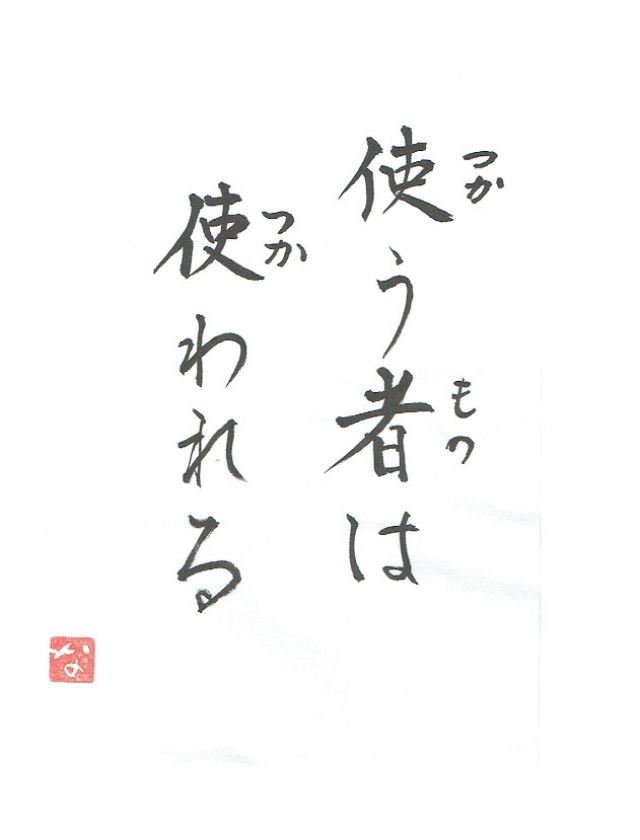 使う者は
つか
もの
使われる
つか
な